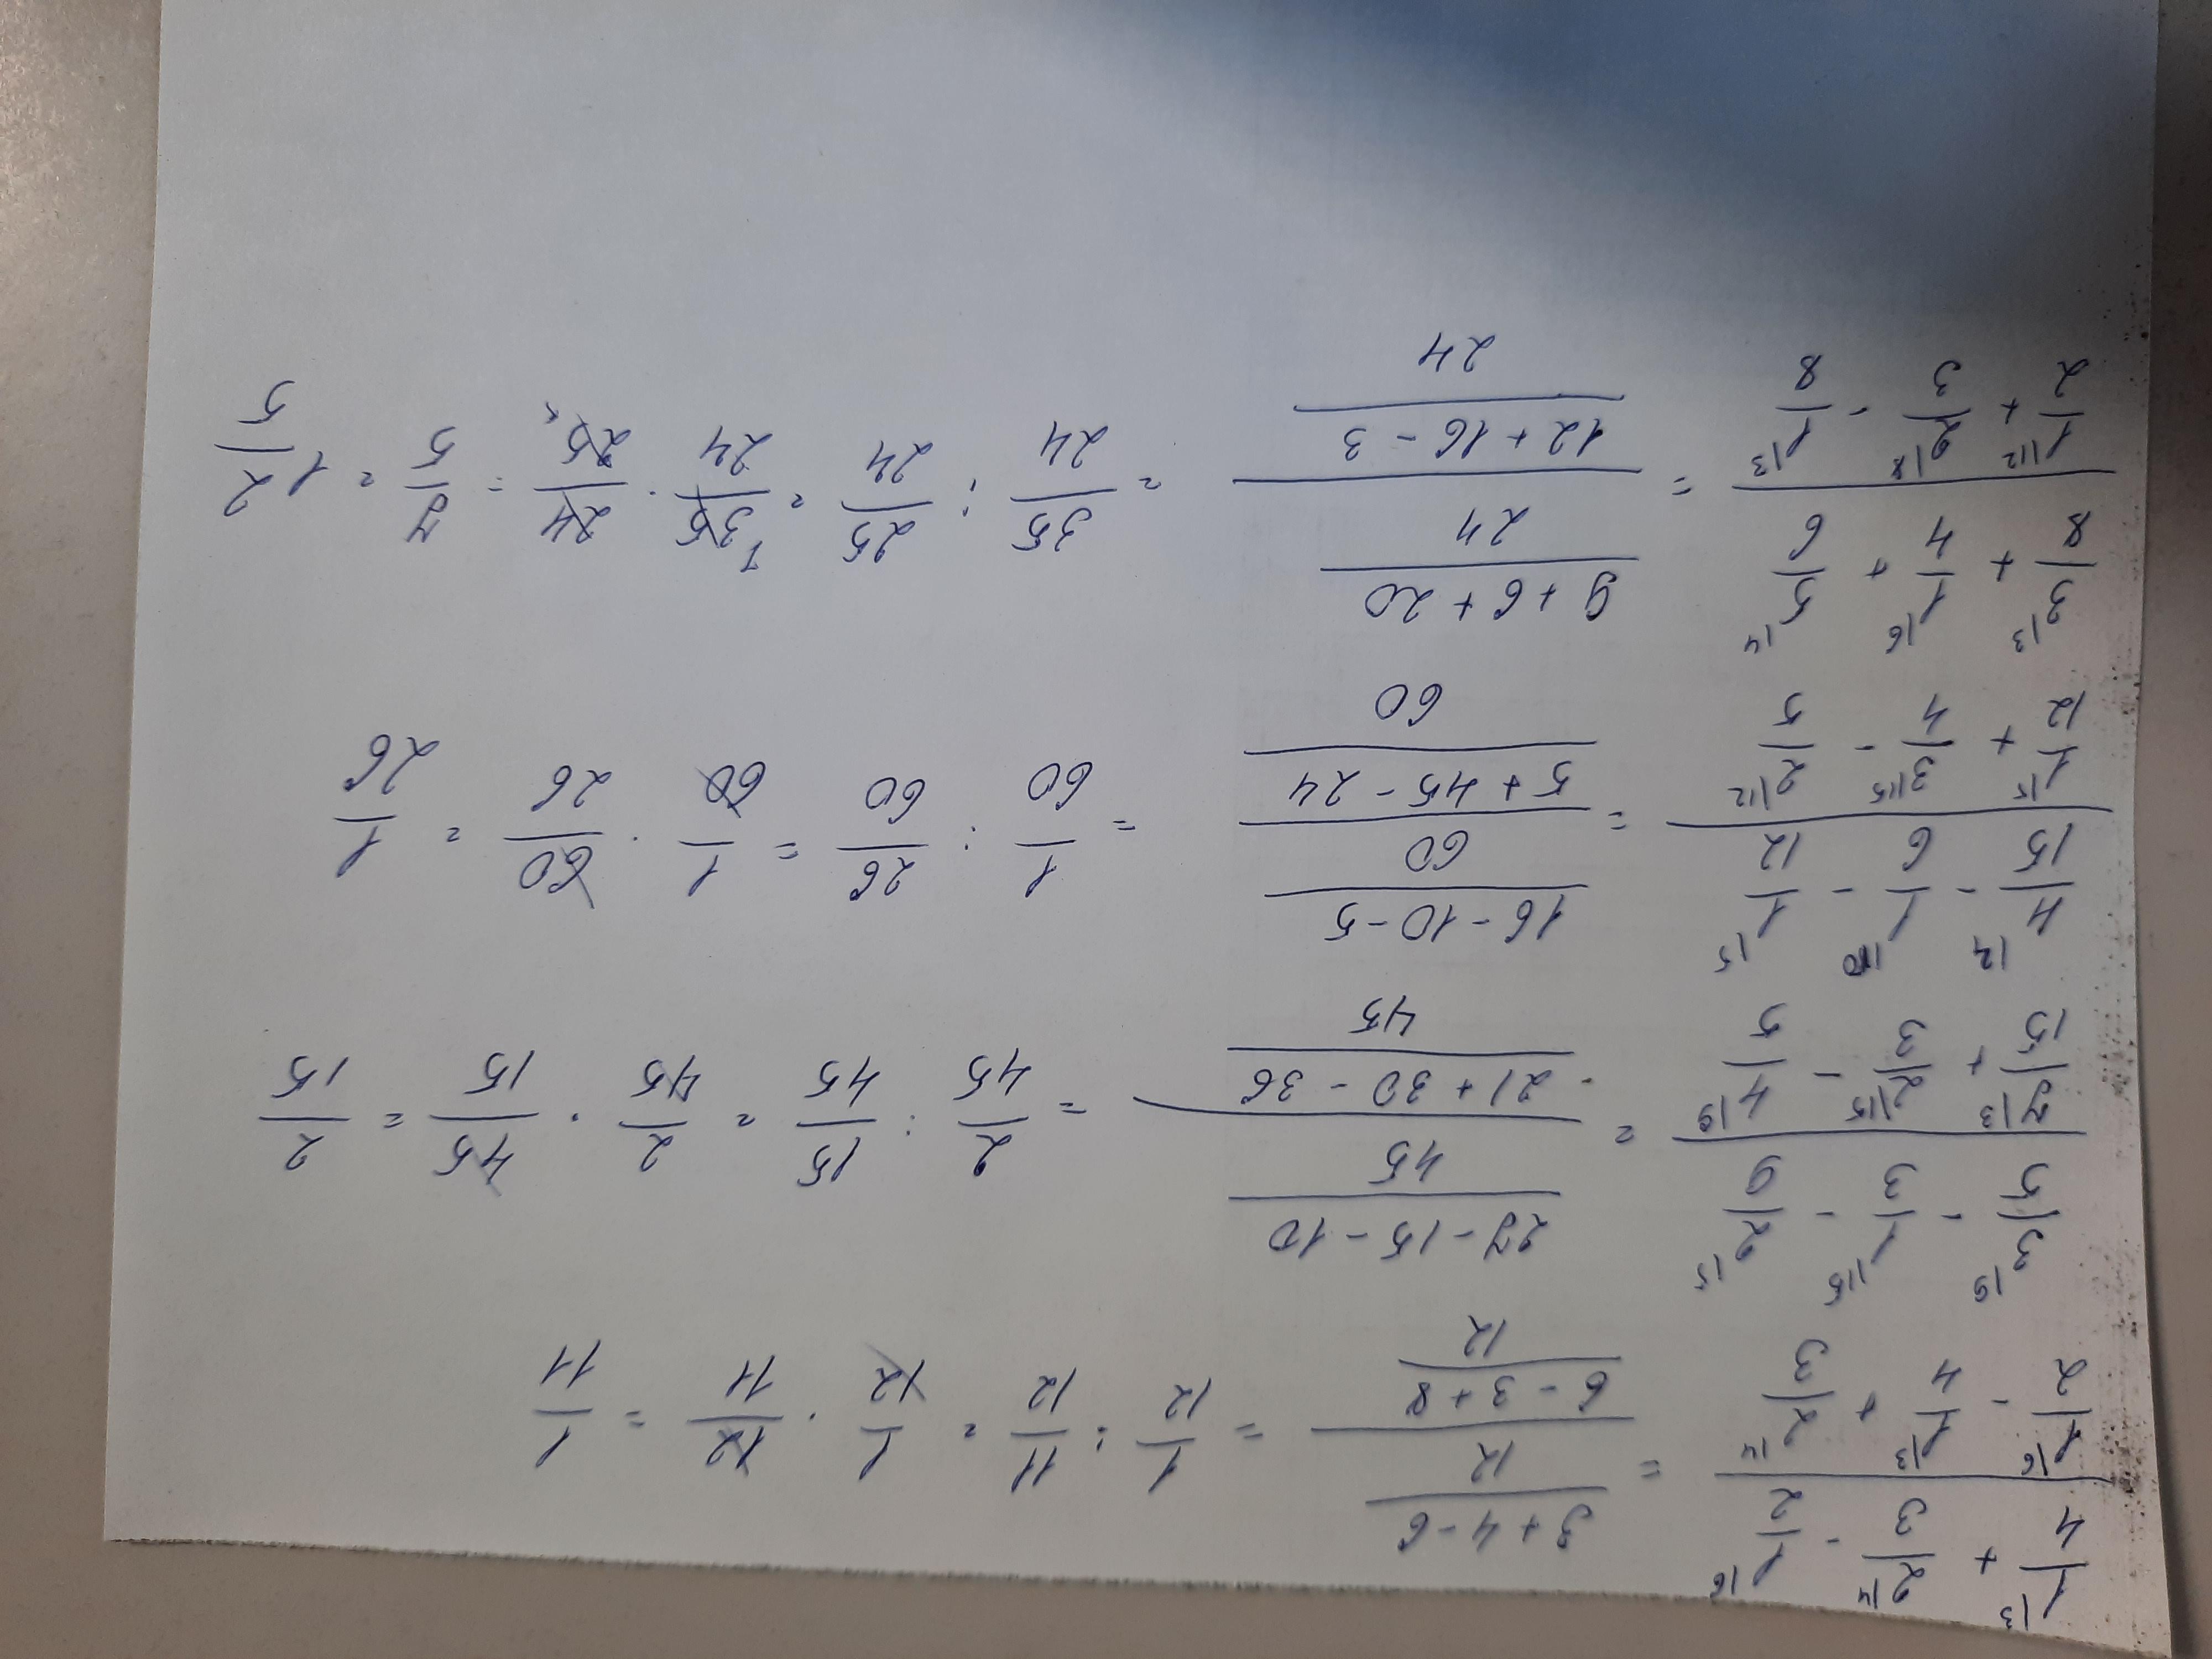 (1|3/4 + 2|4/3 - 1|6/2) / (1|6/2 - 1|3/4 + 2|4/3) = ((3+4-6)/12) / ((6-3+8)/12) = 1/12 : 11/12 = 1/12 · 12/11 = 1/11
(3|9/5 - 1|15/3 - 2|5/9) / (7|3/15 + 2|15/3 - 4|9/5) = ((27-15-10)/45) / ((21+30-36)/45) = 2/45 : 15/45 = 2/45 · 45/15 = 2/15
(4|4/15 - 1|10/6 - 1|5/12) / (1|5/12 + 3|15/4 - 2|12/5) = ((16-10-5)/60) / ((5+45-24)/60) = 1/60 : 26/60 = 1/60 · 60/26 = 1/26
(3|3/8 + 1|6/4 + 5|4/6) / (1|12/2 + 2|8/3 - 1|3/8) = ((9+6+20)/24) / ((12+16-3)/24) = 35/24 : 25/24 = 35/24 · 24/25 = 7/5 = 1 2/5